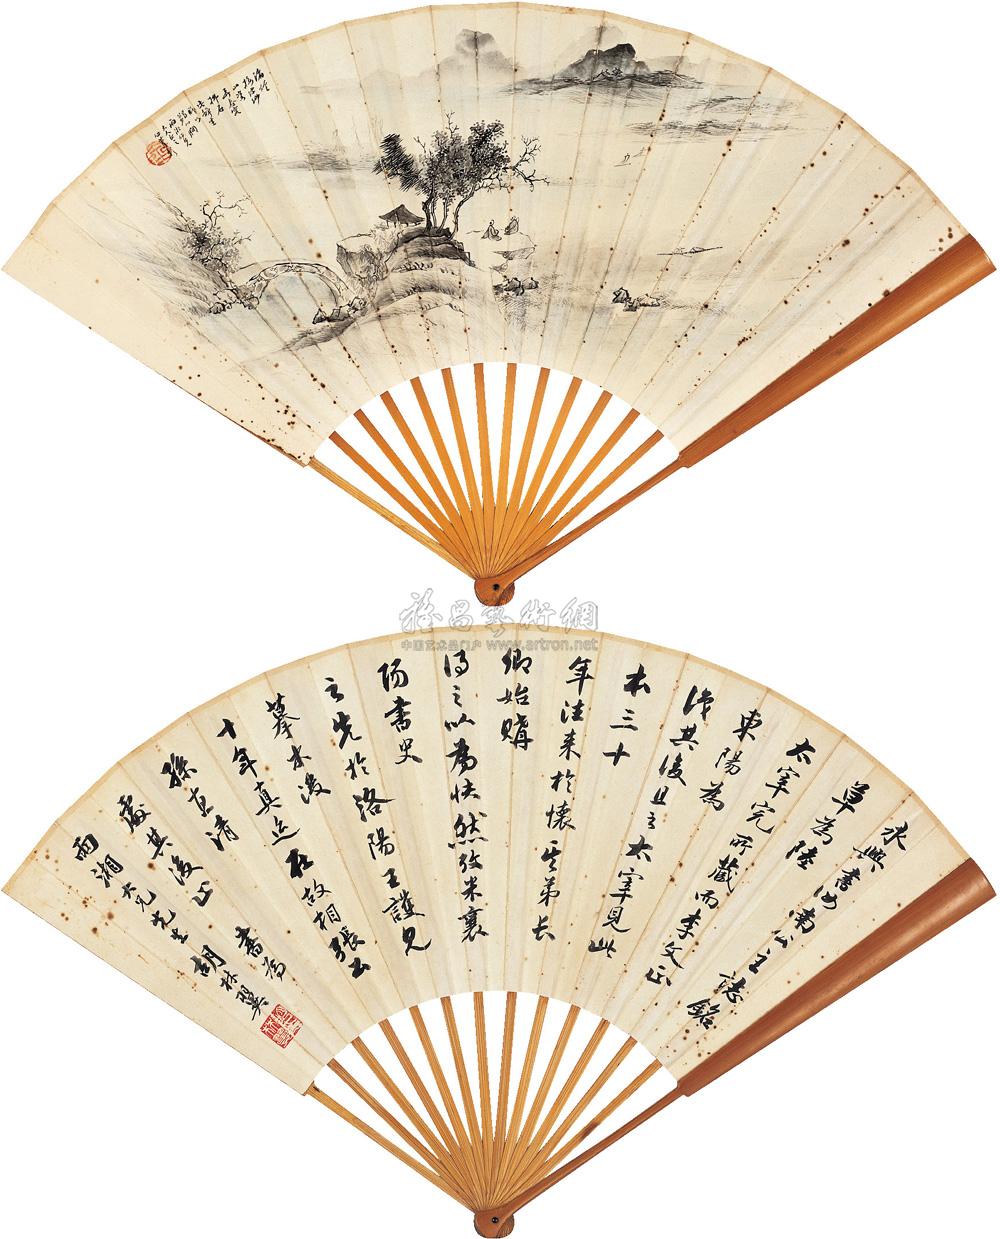 雅昌藝術網
中国艺术品门户 www.artron.net
永興書汝南公主誌銘
草為陸
太宰完所藏而李文正
東陽為
識其後且言太宰見此
本三十
年往来於懷其弟長
卿始購
得之以為快然攷米襄
陽書史
言先於洛陽王護見
摹本後
十年真迹在故相張公
孫直清
處其後山 書為
雨湘大兄先生 胡林翼